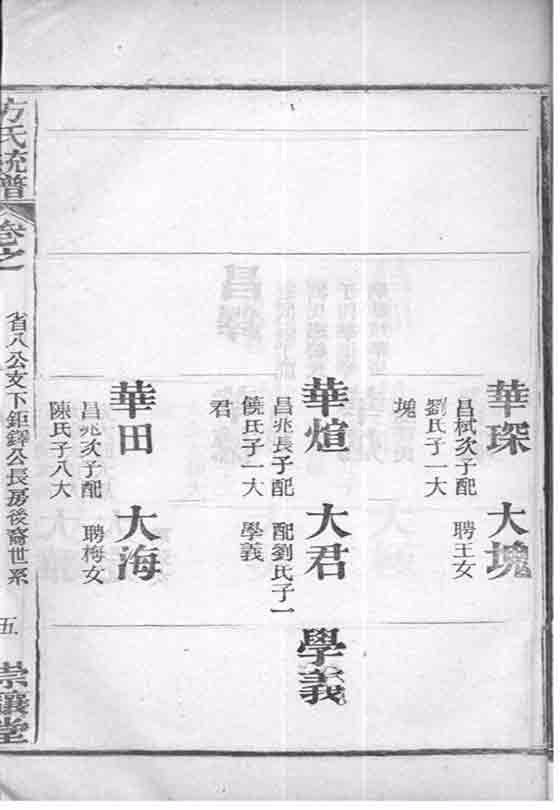 華琛
昌栻次子配
劉氏子一大
塊
大塊
聘王女
華煊
昌兆長子配
饒氏子一大
君
大君
配劉氏子一
學義
學義
華田
昌兆次子配
陳氏子八大
大海
聘梅女
方氏統譜
卷之
省八公文下鉅鐸公長房後裔世系
五
崇讓堂